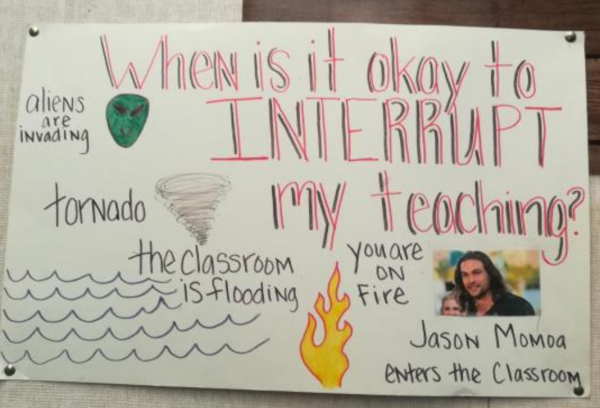 When is it okay to
INTERRUPT
my teaching?
aliens
are
invading
tornado
the classroom
is flooding
you are
on
Fire
Jason Momoa
enters the Classroom